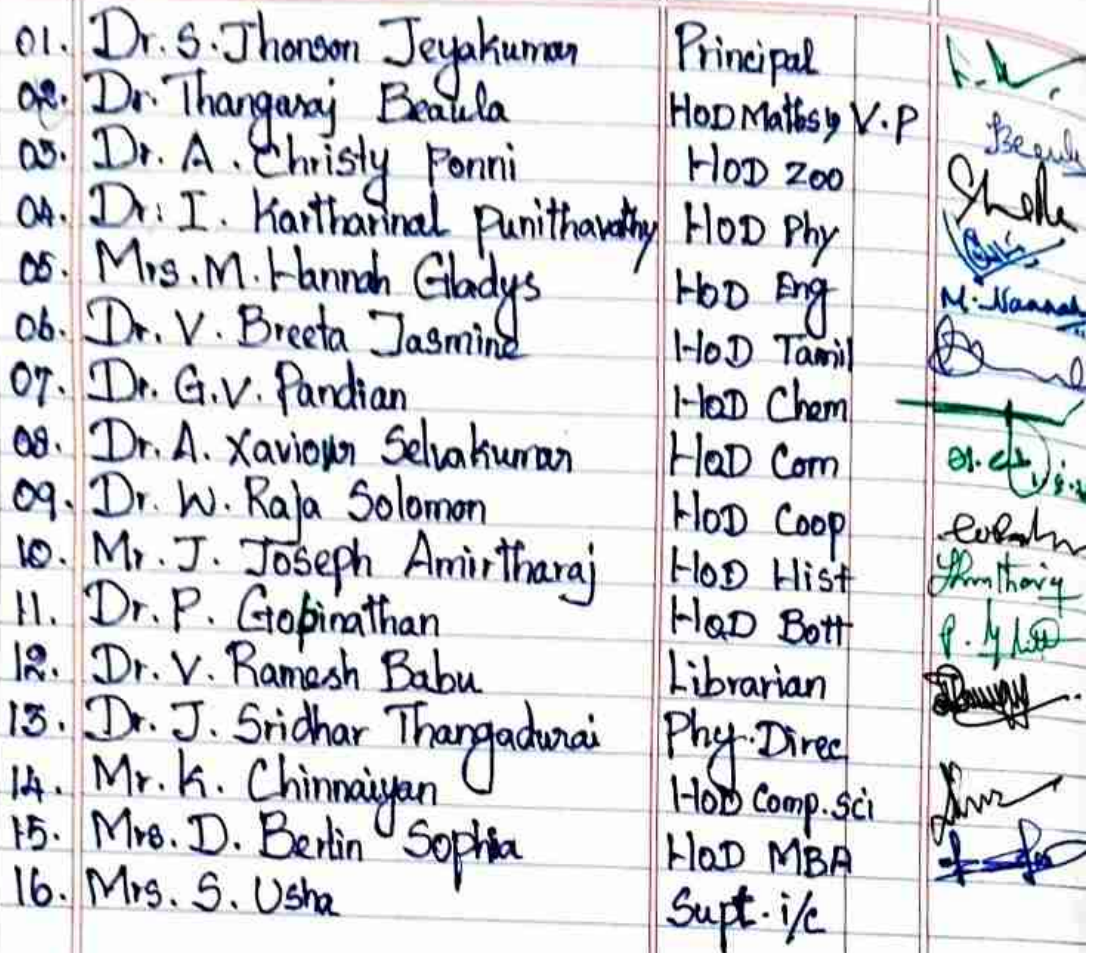 01. Dr. S. Jhonson Jeyakumar Principal
02. Dr. Thangaraj Beaula HOD Maths & V.P Beaula
03. Dr. A. Christy Ponni HOD Zoo
04. Dr. I. Kartharinal Punithavathy HOD Phy
05. Mrs. M. Hannah Gladys HOD Eng M. Hannah
06. Dr. V. Breeta Jasmine HOD Tamil
07. Dr. G.V. Pandian HOD Chem
08. Dr. A. Xaviour Selvakumar HOD Com
09. Dr. W. Raja Solomon HOD Coop
10. Mr. J. Joseph Amirtharaj HOD Hist
11. Dr. P. Gopinathan HOD Bott
12. Dr. V. Ramesh Babu Librarian
13. Dr. J. Sridhar Thangadurai Phy. Direc
14. Mr. K. Chinnaiyan HOD Comp. Sci
15. Mrs. D. Berlin Sophia HOD MBA
16. Mrs. S. Usha Supt. i/c